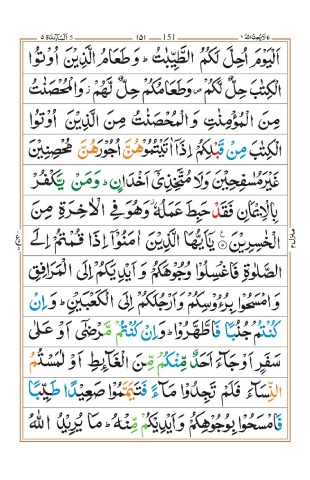 المآئدة ٥ ١٥١ 151 لا يحب الله ٦
اَلْيَوْمَ اُحِلَّ لَكُمُ الطَّيِّبٰتُ ؕ وَطَعَامُ الَّذِيْنَ اُوْتُوا
الْكِتٰبَ حِلٌّ لَّكُمْ ۪ وَطَعَامُكُمْ حِلٌّ لَّهُمْ ؗ وَالْمُحْصَنٰتُ
مِنَ الْمُؤْمِنٰتِ وَالْمُحْصَنٰتُ مِنَ الَّذِيْنَ اُوْتُوا
الْكِتٰبَ مِنْ قَبْلِكُمْ اِذَاۤ اٰتَيْتُمُوْهُنَّ اُجُوْرَهُنَّ مُحْصِنِيْنَ
غَيْرَ مُسٰفِحِيْنَ وَلَا مُتَّخِذِيْۤ اَخْدَانٍ ؕ وَمَنْ يَّكْفُرْ
بِالْاِيْمَانِ فَقَدْ حَبِطَ عَمَلُهٗ ؗ وَهُوَ فِي الْاٰخِرَةِ مِنَ
الْخٰسِرِيْنَ ۝ يٰۤاَيُّهَا الَّذِيْنَ اٰمَنُوْۤا اِذَا قُمْتُمْ اِلَى
الصَّلٰوةِ فَاغْسِلُوْا وُجُوْهَكُمْ وَاَيْدِيَكُمْ اِلَى الْمَرَافِقِ
وَامْسَحُوْا بِرُءُوْسِكُمْ وَاَرْجُلَكُمْ اِلَى الْكَعْبَيْنِ ؕ وَاِنْ
كُنْتُمْ جُنُبًا فَاطَّهَّرُوْا ؕ وَاِنْ كُنْتُمْ مَّرْضٰۤى اَوْ عَلٰى
سَفَرٍ اَوْ جَآءَ اَحَدٌ مِّنْكُمْ مِّنَ الْغَآئِطِ اَوْ لٰمَسْتُمُ
النِّسَآءَ فَلَمْ تَجِدُوْا مَآءً فَتَيَمَّمُوْا صَعِيْدًا طَيِّبًا
فَامْسَحُوْا بِوُجُوْهِكُمْ وَاَيْدِيْكُمْ مِّنْهُ ؕ مَا يُرِيْدُ اللّٰهُ